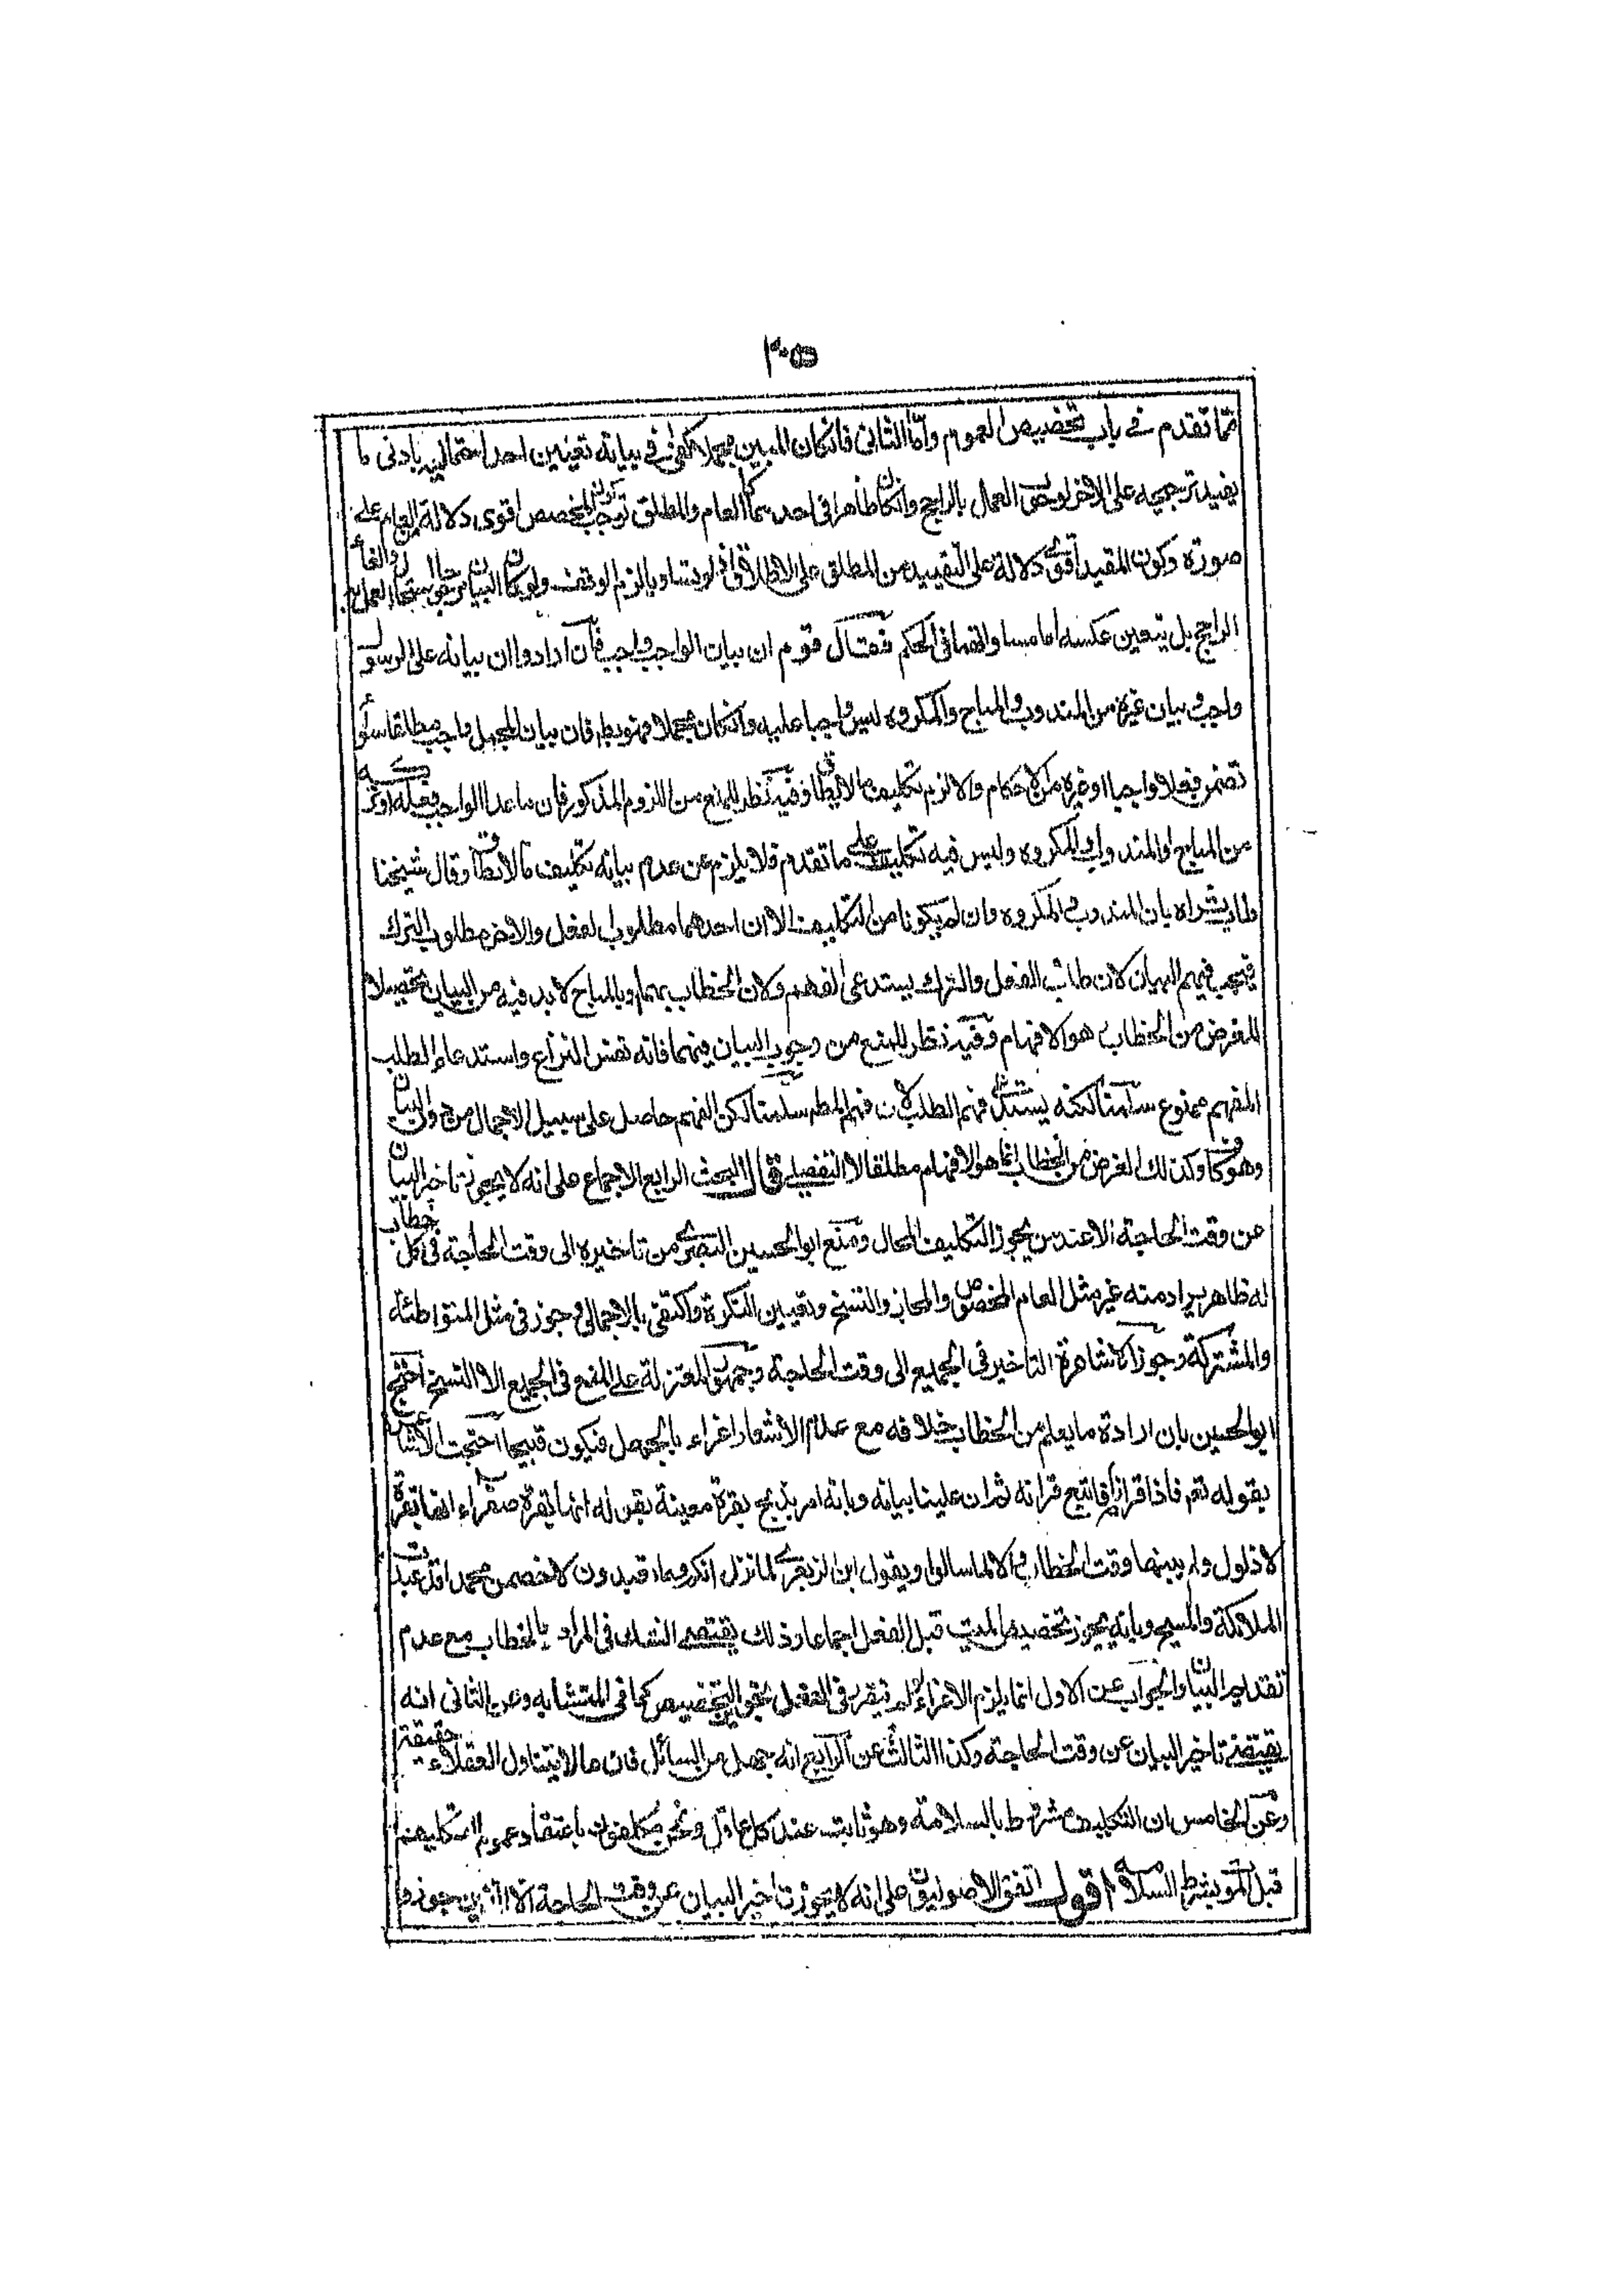 ٣٠٥
مما تقدم فى باب تخصيص العموم واما الثانى فانكان المبين مجملا كفى فى بيانه تعيين احد احتماليه بادنى ما
يفيد ترجيحه على الاخر لوجوب العمل بالراجح وانكان ظاهرا فى احدهما كالعام والمطلق توجب كون المخصص اقوى دلالة العام على
صورة وكون المقيد اقوى دلالة على التقييد من المطلق على الاطلاق اذ لو تساويا لزم الوقف ولو كان البيان مرجوحا استحال العمل به والغاء
الراجح بل يتعين عكسه اما مساواتهما فى الحكم فقال قوم ان بيان الواجب واجب فان ارادوا ان بيانه على الرسول
واجب وبيان غيره من المندوب والمباح والمكروه ليس واجبا عليه وانكان مجملا فهو بط فان بيان المجمل واجب مطلقا سواء
تضمن فعلا واجبا او غيره من الاحكام والا لزم تكليف ما لا يطاق وفيه نظر للمنع من اللزوم المذكور فان ما عدا الواجب فعله او تركه
من المباح او المندوب او المكروه وليس فيه تكليف على ما تقدم فلا يلزم من عدم بيانه تكليف ما لا يطاق وقال شيخنا
طاب ثراه بان المندوب والمكروه وان لم يكونا من التكليف الا ان احدهما مطلوب الفعل والاخر مطلوب الترك
فيجب فيهم البيان لان طلب الفعل والترك يستدعى الفهم ولان الخطاب بهما وبالمباح لابد فيه من البيان تحصيلا
للغرض من الخطاب هو الافهام وفيه نظر للمنع من وجوب البيان فيهما فانه نفس النزاع واستدعاء الطلب
الفهم ممنوع سلمنا لكنه يستدعى فهم الطلب لا فهم المطلوب سلمنا لكن الفهم حاصل على سبيل الاجمال من دون البيان
وهو كاف وكذلك الغرض من الخطاب انما هو الافهام مطلقا لا التفصيلى قال البحث الرابع الاجماع على انه لا يجوز تاخير البيان
عن وقت الحاجة الا عند من يجوز التكليف المحال ومنع ابو الحسين البصرى من تاخيره الى وقت الحاجة فى كل خطاب
له ظاهر يراد منه غيره مثل العام المخصوص والمجاز والنسخ وتعيين النكرة واكتفى بالاجمالى وجوز فى مثل المتواطئة
والمشتركة وجوز الاشاعرة التاخير فى الجميع الى وقت الحاجة وجمهور المعتزلة على المنع فى الجميع الا النسخ احتج
ابو الحسين بان ارادة ما يعلم من الخطاب خلافه مع عدم الاشعار اغراء بالجهل فيكون قبيحا احتجت الاشاعرة
بقوله تعم فاذا قراناه فاتبع قرانه ثم ان علينا بيانه وبانه امر بذبح بقرة معينة بقوله انها بقرة صفراء انها بقرة
لا ذلول ولم يبينها وقت الخطاب والا لما سالوا وبقول ابن الزبعرى لما نزل انكم وما تعبدون لاخصمن محمدا قد عبدت
الملائكة والمسيح وبانه يجوز تخصيص الميت قبل الفعل اجماعا وذلك يقتضى الشك فى المراد بالخطاب مع عدم
تقديم البيان والجواب عن الاول انما يلزم الاغراء لو لم يتقرر فى العقل تجويز التخصيص كما فى المتشابه وعن الثانى انه
يقتضى تاخير البيان عن وقت الحاجة وكذا الثالث وعن الرابع انه جهل من السائل فان ما لا يتناول العقلاء حقيقة
وعن الخامس ان التكليف مشروط بالسلامة وهو ثابت عند كل عاقل ونحن مكلفون باعتقاد عموم التكليف
قبل الموت بشرط السلامة اقول اتفق الاصوليون على انه لا يجوز تاخير البيان عن وقت الحاجة الا الذين جوزوا